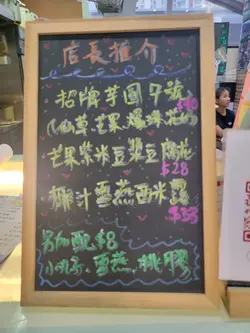 店長推介
招牌芋圓9號
$40
(仙草、芒果、爆珠
芒果紫米豆漿豆腐花
$28
椰汁雪燕西米露
$33
另加配$8
小丸子、雪燕、桃膠